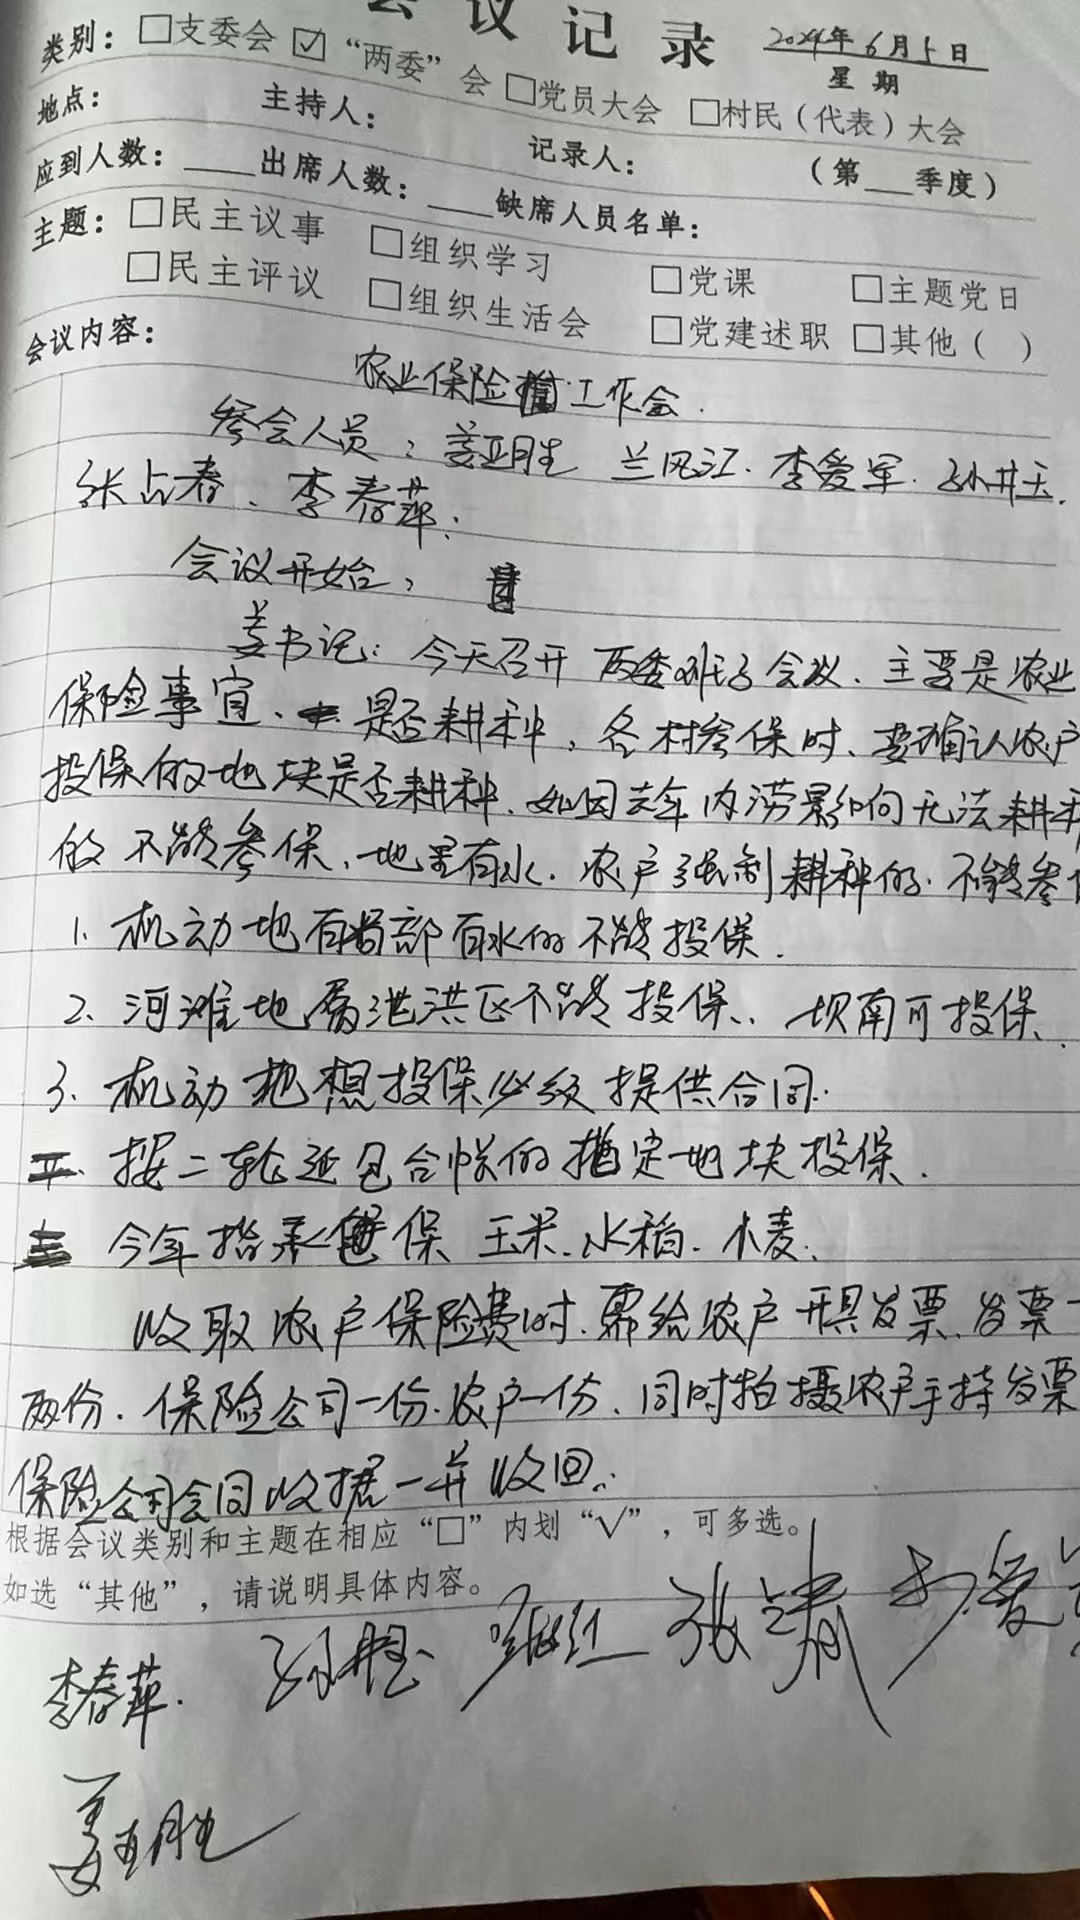 会议记录 2024年6月5日
星期
类别：□支委会 ☑“两委”会 □党员大会 □村民（代表）大会
地点： 主持人： 记录人： （第___季度）
应到人数：____出席人数：____缺席人员名单：
主题：□民主议事 □组织学习 □党课 □主题党日
□民主评议 □组织生活会 □党建述职 □其他（ ）
会议内容：
农业保险工作会.
参会人员：姜亚胜 兰凤江.李爱军.孙井玉.
张占春、李春萍.
会议开始：
姜书记：今天召开两委班子会议、主要是农业
保险事宜、是否耕种，各村参保时、要确认农户
投保的地块是否耕种.如因去年内涝影响无法耕种
的不能参保、地里有水.农户强制耕种的.不能参
1.机动地有局部有水的不能投保.
2、河滩地属泄洪区不能投保、坝南可投保.
3.机动地想投保必须提供合同.
二.按二轮延包台帐的指定地块投保.
三 今年指承保玉米.水稻.小麦.
收取农户保险费时.需给农户开具发票.发票一
两份.保险公司一份.农户一份、同时拍摄农户手持发票
保险公司合同收据一并收回.
根据会议类别和主题在相应“□”内划“√”，可多选。
如选“其他”，请说明具体内容。
李春萍. 孙井玉 张占春 李爱军
姜亚胜